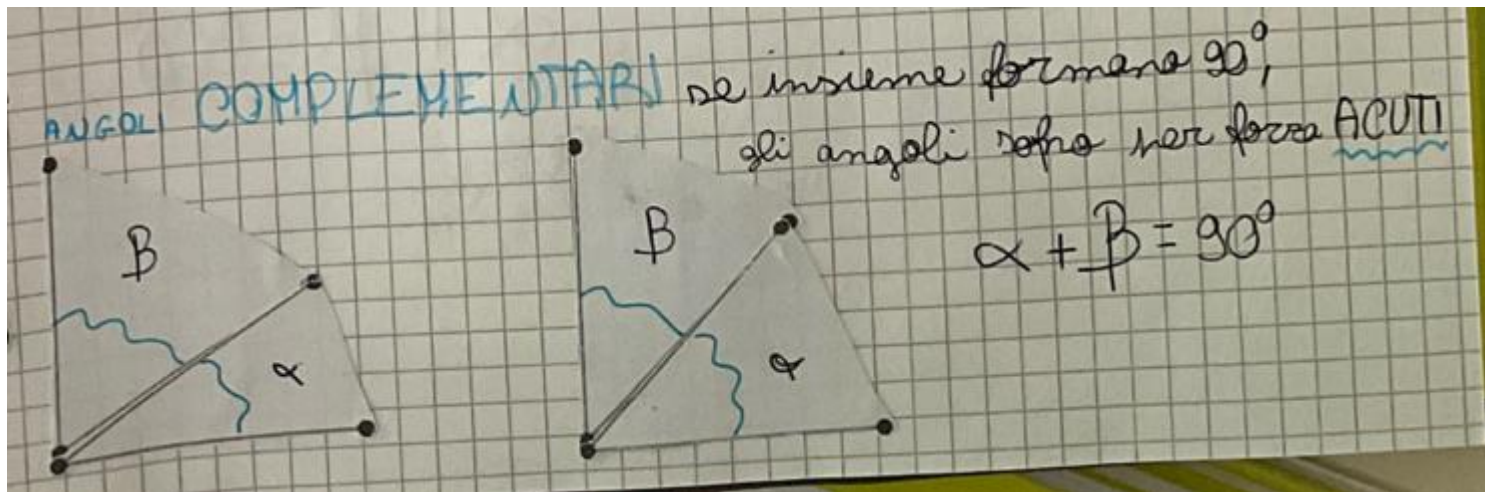 ANGOLI COMPLEMENTARI se insieme formano 90°,
gli angoli sono per forza ACUTI
β
α
β
α
α + β = 90°